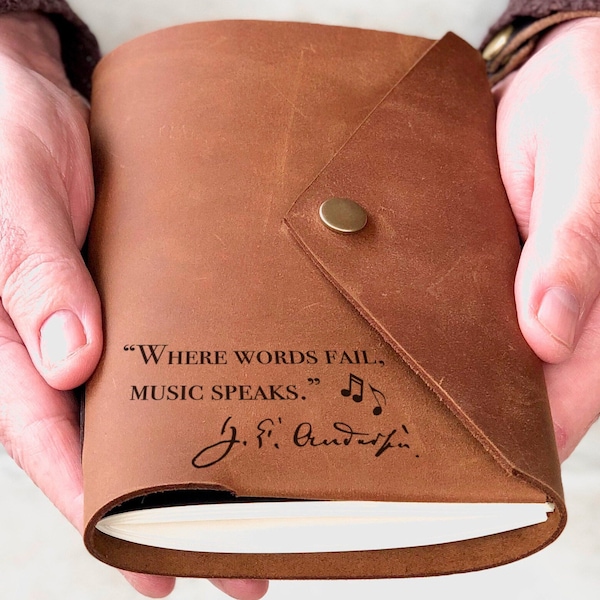 “Where words fail,
music speaks.”
J. E. Andersen.